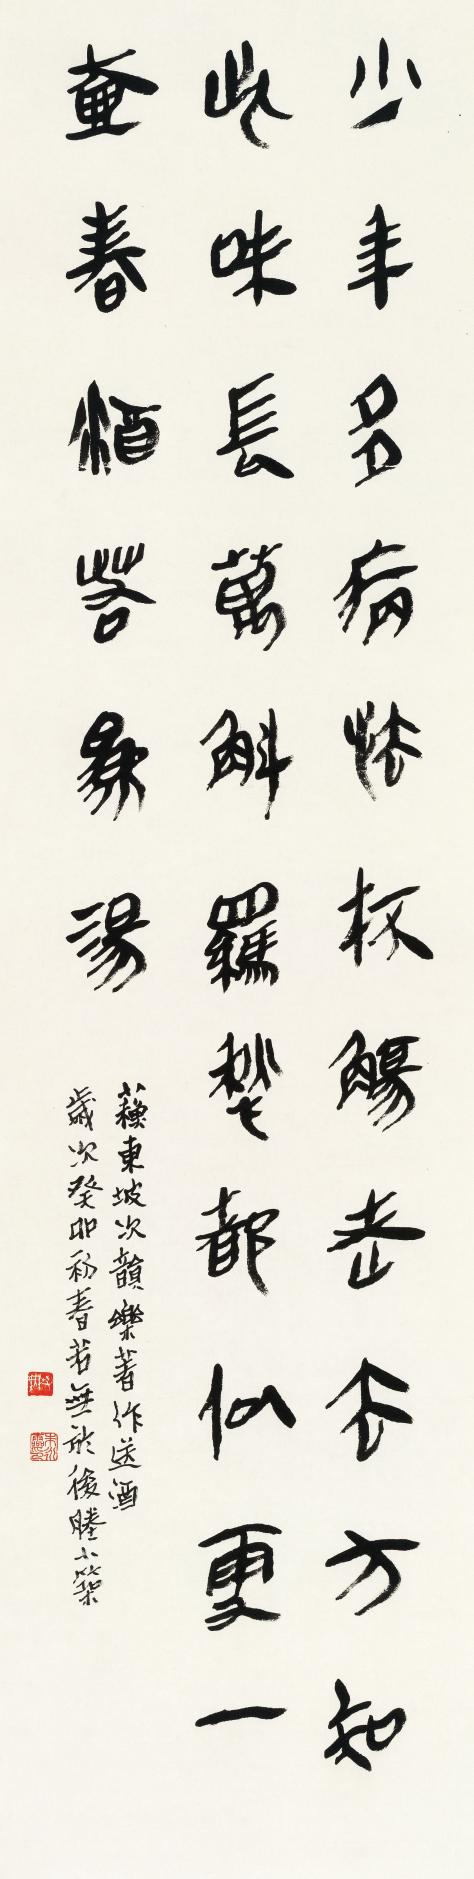 少年多病怯杯觴老去方知
此味長萬斛羈愁都似雪一
壺春酒若為湯
蘇東坡次韻樂著作送酒
歲次癸卯初春若無於後塍小築